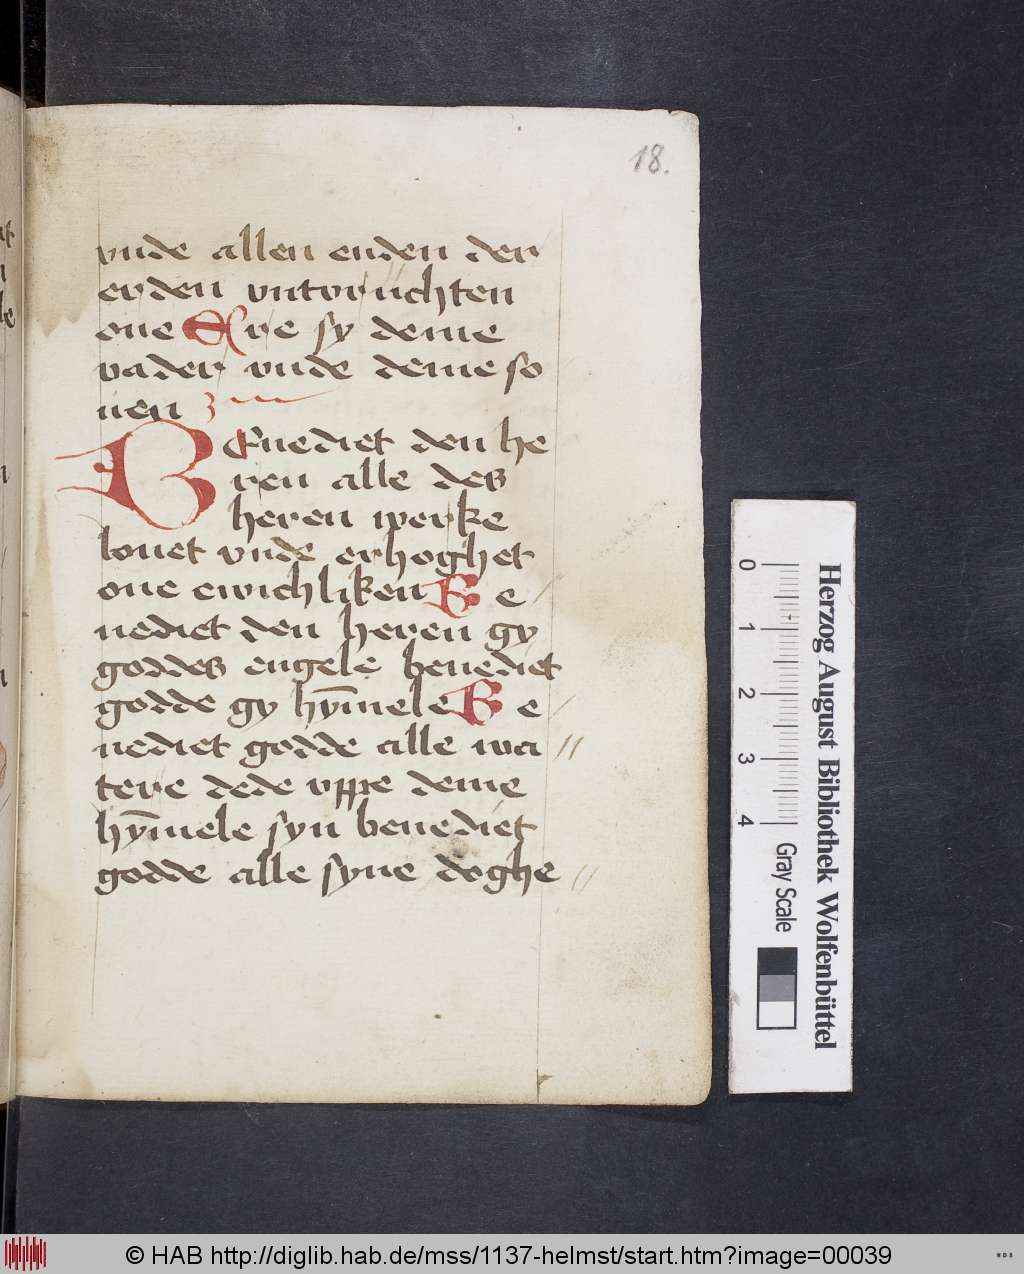 18.
vnde allen enden der
erden vntvruchten
one Ere sy deme
vader vnde deme so
nen
BEnediet den he
ren alle des
heren werke
louet vnde erhoghet
one ewichliken Be
nediet den heren gy
goddes engele benediet
godde gy hȳmele Be
nediet godde alle wa
tere dede vppe deme
hȳmele syn benediet
godde alle syne doghe
0 1 2 3 4
Gray Scale
Herzog August Bibliothek Wolfenbüttel
© HAB http://diglib.hab.de/mss/1137-helmst/start.htm?image=00039